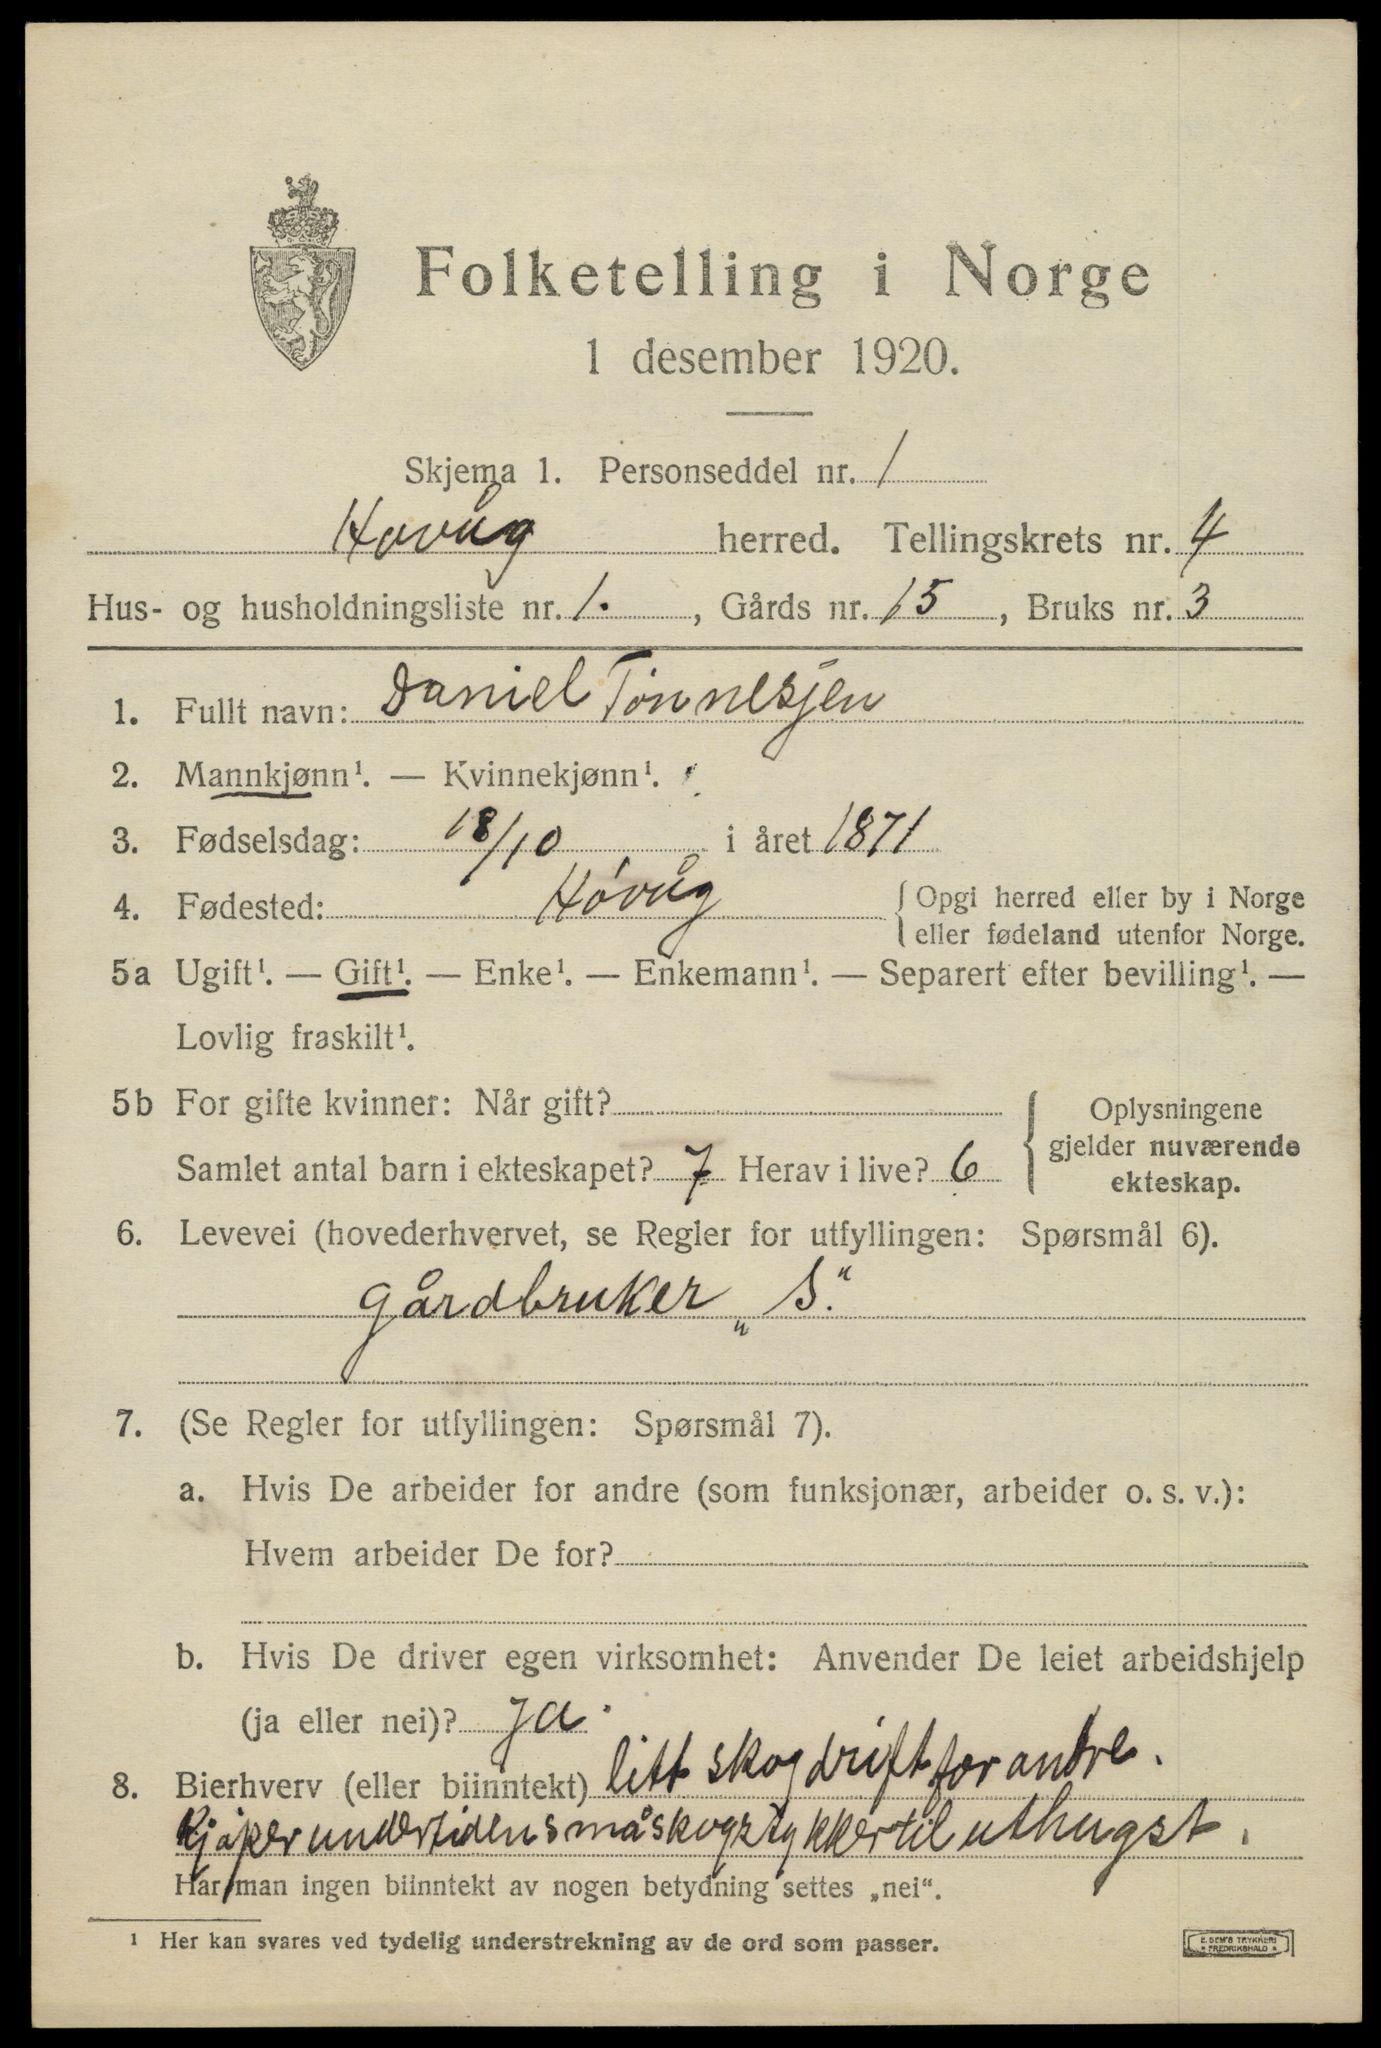 Folketelling i Norge
1 desember 1920.
Skjema 1. Personseddel nr. 1
Høvåg herred. Tellingskrets nr. 4
Hus- og husholdningsliste nr. 1. , Gårds nr. 15 , Bruks nr. 3
1. Fullt navn: Daniel Tønnesjen
2. Mannkjønn¹. — Kvinnekjønn¹.
3. Fødselsdag: 18/10 i året 1871
4. Fødested: Høvåg { Opgi herred eller by i Norge
eller fødeland utenfor Norge.
5a Ugift¹. — Gift¹. — Enke¹. — Enkemann¹. — Separert efter bevilling¹. —
Lovlig fraskilt¹.
5b For gifte kvinner: Når gift?
Samlet antal barn i ekteskapet? 7 Herav i live? 6
{ Oplysningene
gjelder nuværende
ekteskap.
6. Levevei (hovederhvervet, se Regler for utfyllingen: Spørsmål 6).
Gårdbruker „S."
7. (Se Regler for utfyllingen: Spørsmål 7).
a. Hvis De arbeider for andre (som funksjonær, arbeider o. s. v.):
Hvem arbeider De for?
b. Hvis De driver egen virksomhet: Anvender De leiet arbeidshjelp
(ja eller nei)? ja.
8. Bierhverv (eller biinntekt) litt skogdrift for andre.
Kjøper undertiden småskogstykker til uthugst.
Har man ingen biinntekt av nogen betydning settes „nei“.
¹ Her kan svares ved tydelig understrekning av de ord som passer.
E. SEM'S TRYKKERI
* FREDRIKSHALD *